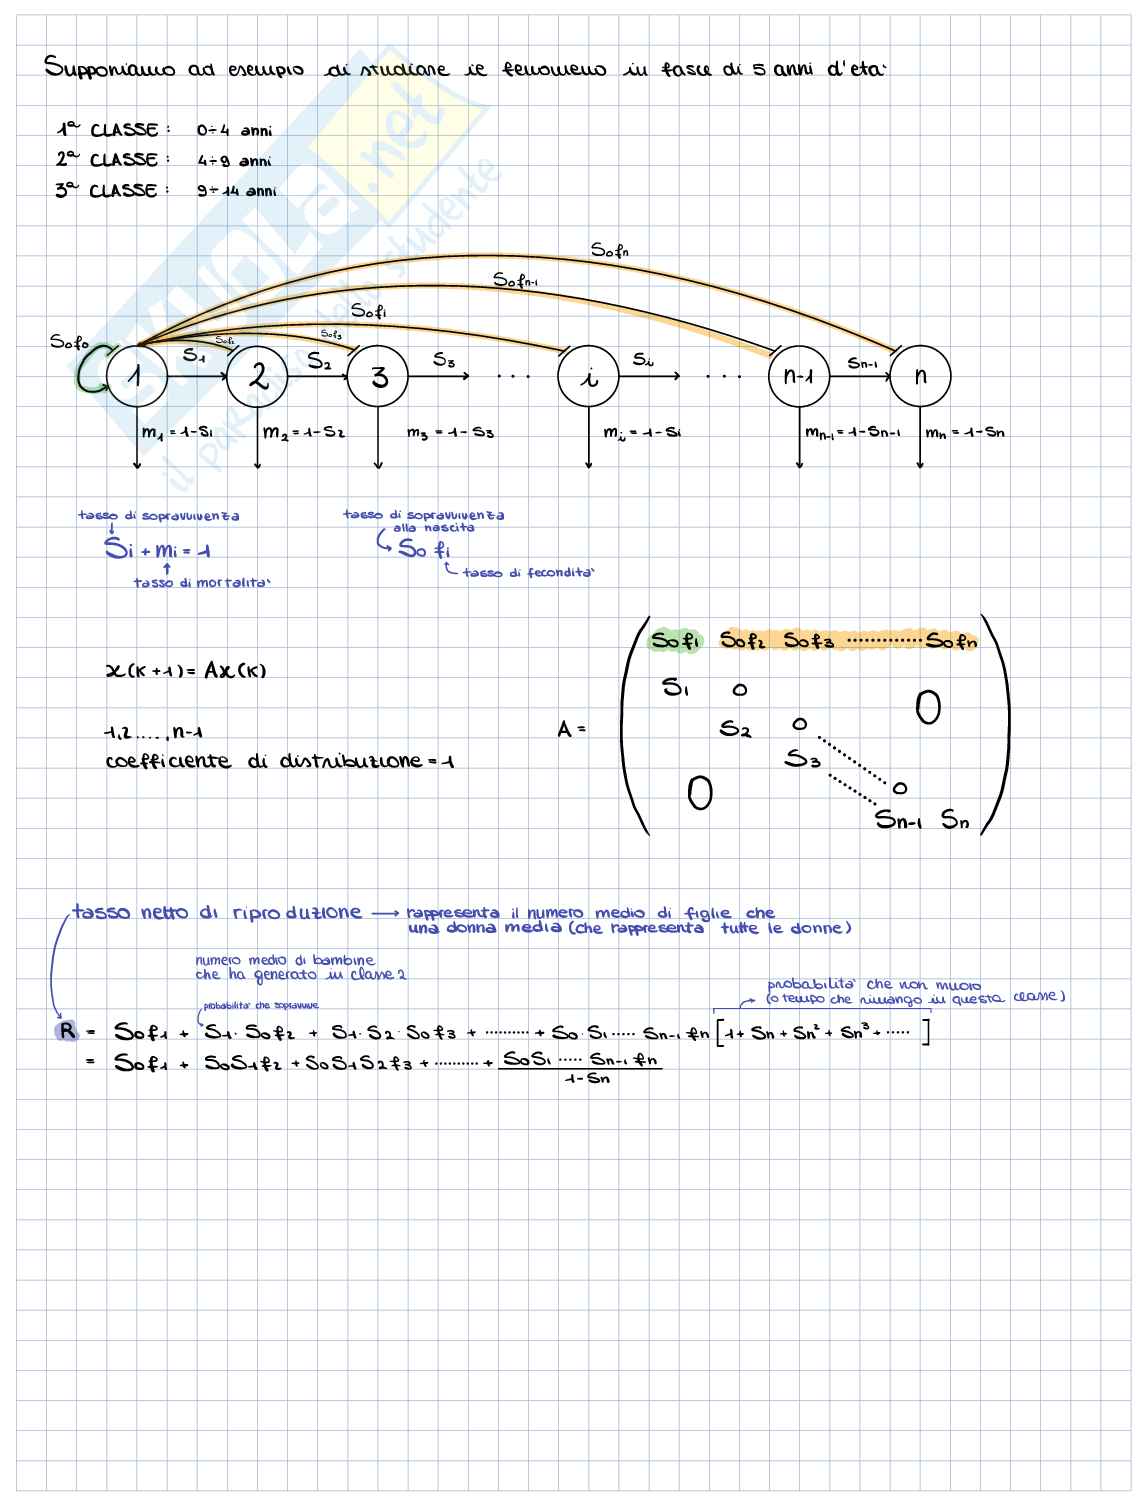 Supponiamo ad esempio di studiare il fenomeno in fasce di 5 anni d'eta'
1ª CLASSE : 0÷4 anni
2ª CLASSE : 4÷9 anni
3ª CLASSE : 9÷14 anni
SKUOLA.net
il paradiso dello studente
S0fn
S0fn-1
S0fi
S0f0 S1 S0f2 S2 S0f3 S3 Si Sn-1
1 2 3 . . . i . . . n-1 n
m1 = 1-Si m2 = 1-S2 m3 = 1-S3 mi = 1-Si mn-1 = 1-Sn-1 mn = 1-Sn
tasso di sopravvivenza
Si + mi = 1
tasso di mortalita'
tasso di sopravvivenza
alla nascita
S0 fi
tasso di fecondita'
x(k+1) = Ax(k)
1,2 ...., n-1
coefficiente di distribuzione = 1
A =
S0f1 S0f2 S0f3 ............. S0fn
S1 0
0
S2 0
S3
0 0
Sn-1 Sn
tasso netto di riproduzione → rappresenta il numero medio di figlie che
una donna media (che rappresenta tutte le donne)
numero medio di bambine
che ha generato in classe 2
probabilita' che sopravvive
probabilita' che non muoio
(o tempo che rimango in questa classe)
R = S0f1 + S1· S0f2 + S1· S2· S0f3 + .......... + S0· S1 ..... Sn-1 fn [1 + Sn + Sn² + Sn³ + ..... ]
= S0f1 + S0S1f2 + S0S1S2f3 + .......... + S0S1 ..... Sn-1 fn
1-Sn